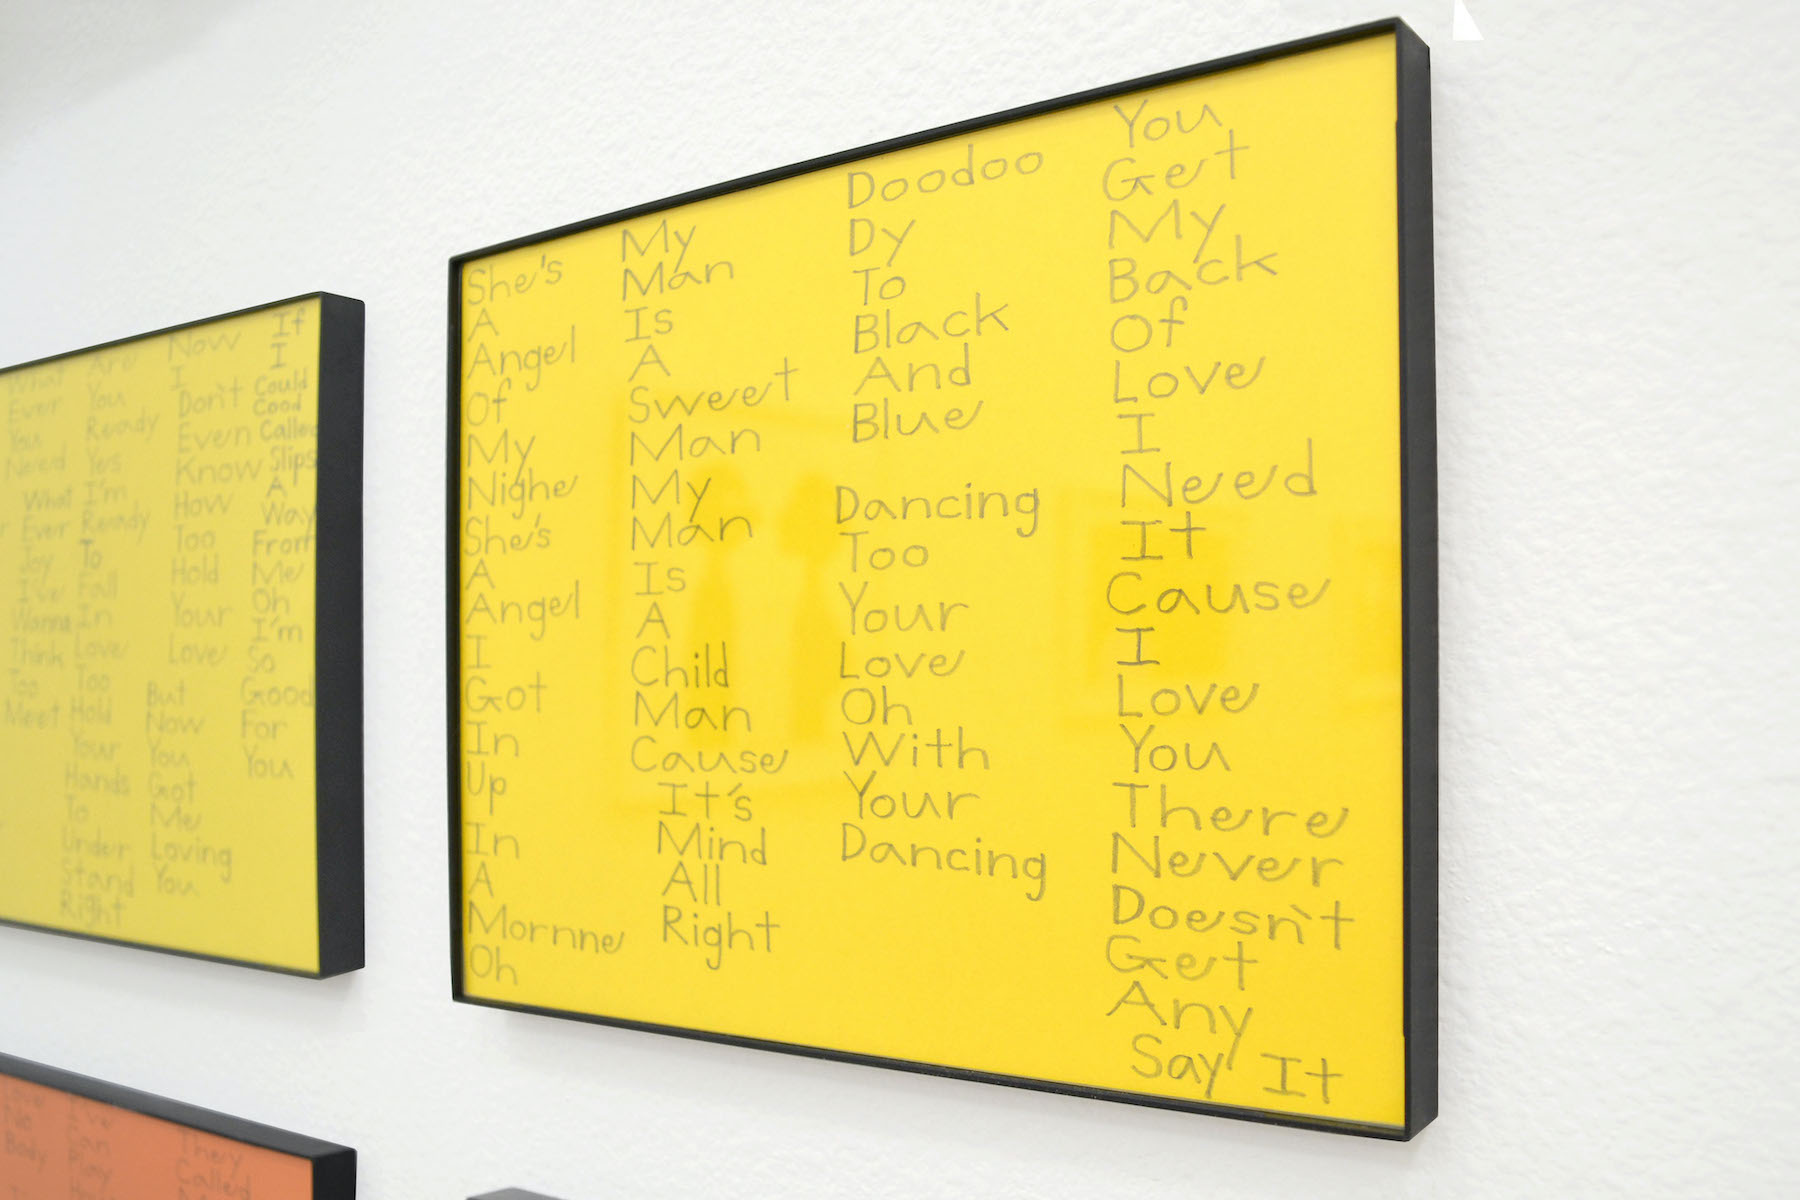 What
Ever
You
Need
What
Ever
Joy
I've
Wanna
Think
Too
Meet
Are
You
Ready
Yes
I'm
Ready
To
Fall
In
Love
Too
Hold
Your
Hands
To
Under
Stand
Right
Now
I
Don't
Even
Know
How
Too
Hold
Your
Love
But
Now
You
Got
Me
Loving
You
If
I
Could
Good
Called
Slips
A
Way
From
Me
Oh
I'm
So
Good
For
You
She's
A
Angel
Of
My
Nighe
She's
A
Angel
I
Got
In
Up
In
A
Mornne
Oh
My
Man
Is
A
Sweet
Man
My
Man
Is
A
Child
Man
Cause
It's
Mind
All
Right
Doodoo
Dy
To
Black
And
Blue
Dancing
Too
Your
Love
Oh
With
Your
Dancing
You
Get
My
Back
Of
Love
I
Need
It
Cause
I
Love
You
There
Never
Doesn't
Get
Any
Say It
No
Body
Play
They
Called